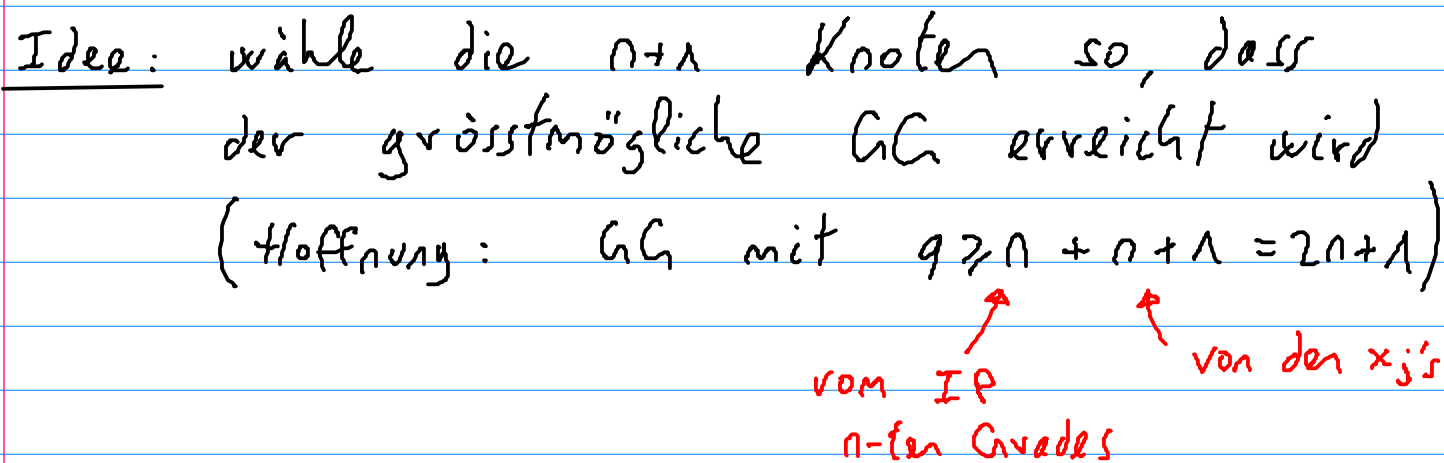 Idee: wähle die n+1 Knoten so, dass
der grösstmögliche GG erreicht wird
(Hoffnung: GG mit q ≥ n + n + 1 = 2n+1)
vom IP
n-ten Grades
von den xj's